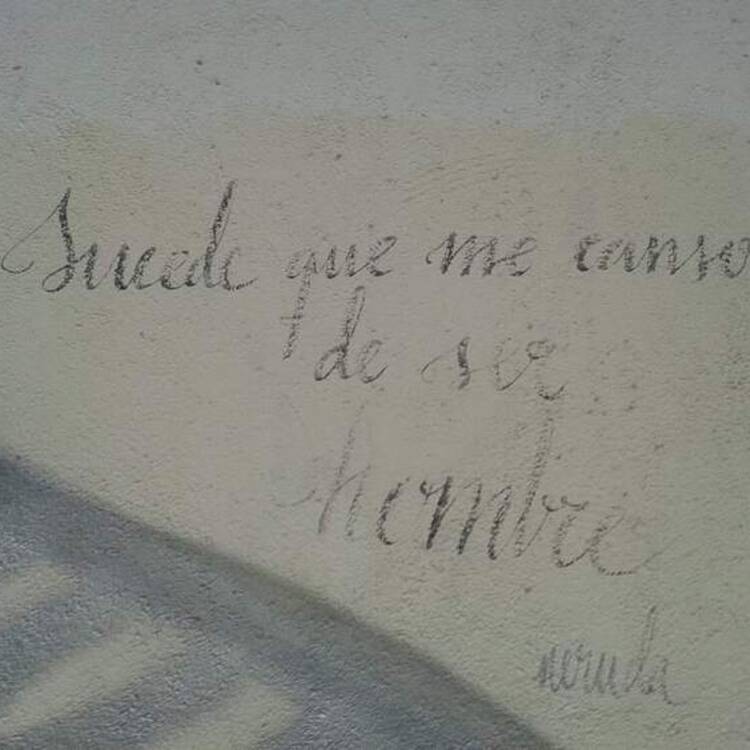 Sucede que me canso
de ser
hombre
neruda